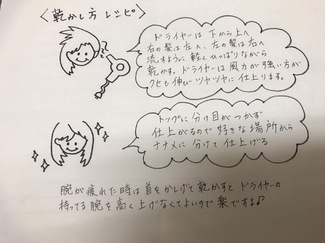 〈乾かし方 レシピ〉
ドライヤーは 下から上へ
右の髪は左へ、左の髪は右へ
流すように 軽くひっぱりながら
乾かす。ドライヤーは風力が強い方が
クセも伸びツヤツヤに仕上ります。
トップに分け目がつかず
仕上がるので好きな場所から
ナナメに分けて仕上げる
腕が疲れた時は首をかしげて乾かすと ドライヤーの
持ってる腕を高く上げなくてよいので楽ですよ♪